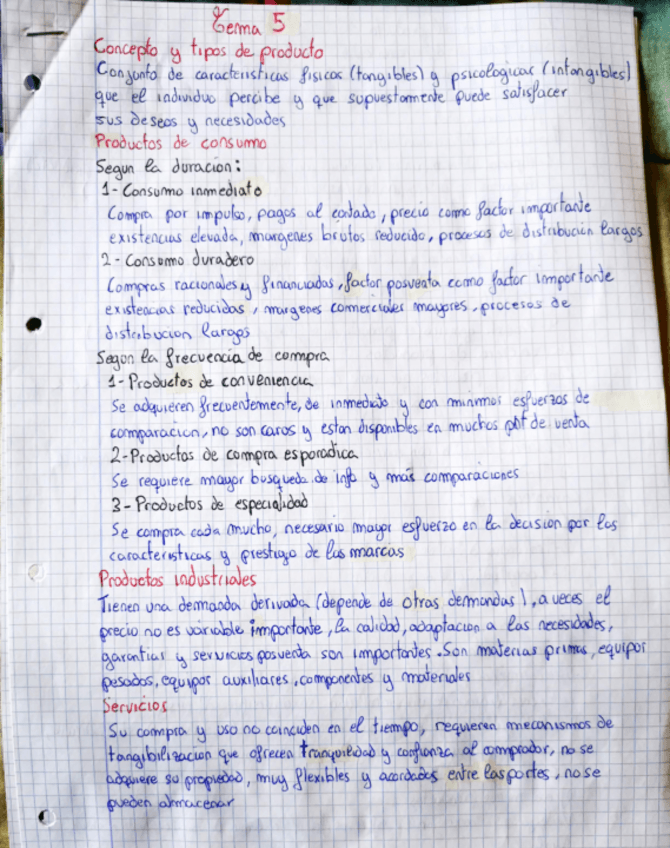 Tema 5
Concepto y tipos de producto
Conjunto de caracteristicas fisicas (tangibles) y psicologicas (intangibles)
que el individuo percibe y que supuestamente puede satisfacer
sus deseos y necesidades
Productos de consumo
Segun la duracion:
1- Consumo inmediato
Compra por impulso, pagos al contado, precio como factor importante
existencias elevada, margenes brutos reducido, procesos de distribucion largos
2- Consumo duradero
Compras racionales y financiadas, factor posventa como factor importante
existencias reducidas, margenes comerciales mayores, procesos de
distribucion largos
Segun la frecuencia de compra
1- Productos de conveniencia
Se adquieren frecuentemente, de inmediato y con minimos esfuerzos de
comparacion, no son caros y estan disponibles en muchos de venta
2-Productos de compra esporadica
Se requiere mayor busqueda de info y más comparaciones
3- Productos de especialidad
Se compra cada mucho, necesario mayor esfuerzo en la decision por las
caracteristicas y prestigo de las marcas
Productos industriales
Tienen una demanda derivada (depende de otras demandas), a veces el
precio no es variable importante, la calidad, adaptacion a las necesidades,
garantias y servicios posventa son importantes. Son materias primas, equipos
pesados, equipos auxiliares, componentes y materiales
Servicios
Su compra y uso no coinciden en el tiempo, requieren mecanismos de
tangibilizacion que ofrecen tranquilidad y confianza al comprador, no se
adquiere su propiedad, muy flexibles y acordados entre las partes, no se
pueden almacenar